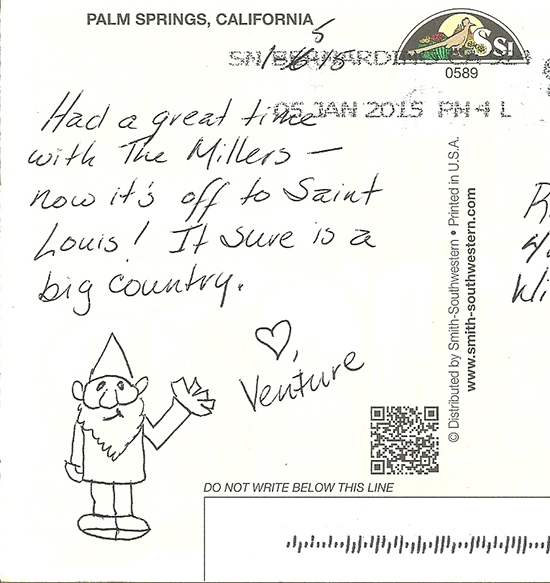 PALM SPRINGS, CALIFORNIA
SSI
0589
SN BERNARDINO CA
05 JAN 2015 PM 4 L
Had a great time
with The Millers —
now it's off to Saint
Louis! It sure is a
big country.
♡,
Venture
© Distributed by Smith-Southwestern • Printed in U.S.A.
www.smith-southwestern.com
DO NOT WRITE BELOW THIS LINE